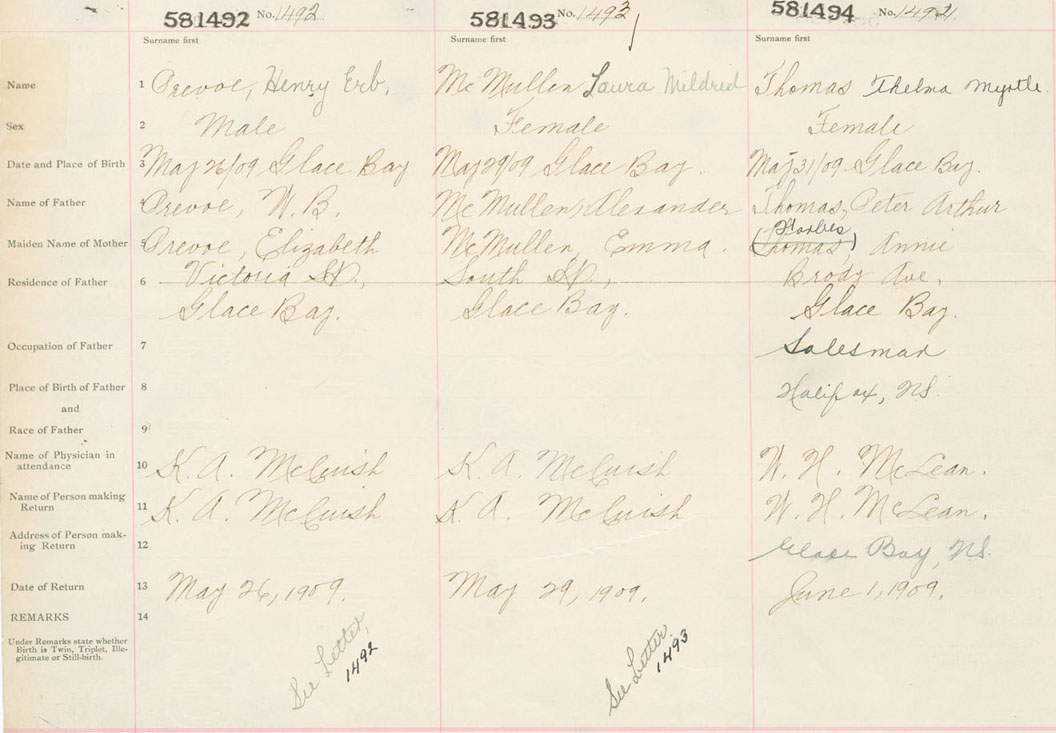 581492 No. 1492
581493 No. 1493
581494 No. 1494
Surname first
Surname first
Surname first
Name 1 Prevoe, Henry Erb, McMullen Laura Mildred Thomas Thelma Myrtle.
Sex 2 Male Female Female
Date and Place of Birth 3 May 26/09 Glace Bay May 29/09 Glace Bay. May 31/09 Glace Bay.
Name of Father 4 Prevoe, W. B. McMullen, Alexander Thomas, Peter Arthur
Forbes
Maiden Name of Mother 5 Prevoe, Elizabeth McMullen Emma. (Thomas) Annie
Residence of Father 6 Victoria St., South St., Brody Ave,
Glace Bay. Glace Bay. Glace Bay.
Occupation of Father 7 Salesman
Place of Birth of Father 8 Halifax, NS.
and
Race of Father 9
Name of Physician in
attendance 10 K. A. McCuish K. A. McCuish W. H. McLean.
Name of Person making
Return 11 K. A. McCuish K. A. McCuish W. H. McLean.
Address of Person mak-
ing Return 12 Glace Bay, NS.
Date of Return 13 May 26, 1909. May 29, 1909. June 1, 1909.
REMARKS 14
Under Remarks state whether
Birth is Twin, Triplet, Ille-
gitimate or Still-birth.
See Letter,
1492
See Letter
1493